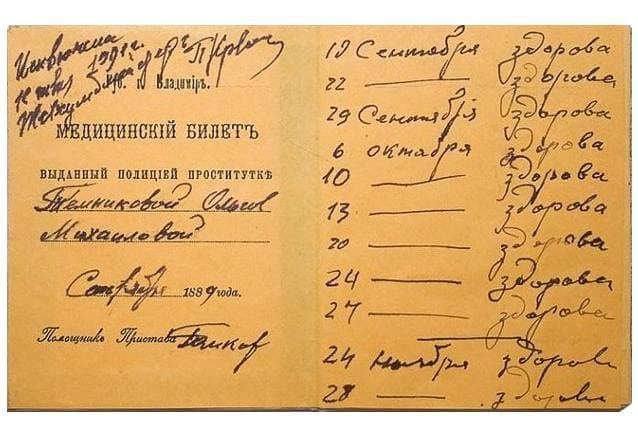 Губ. г. Владиміръ.
МЕДИЦИНСКІЙ БИЛЕТЪ
ВЫДАННЫЙ ПОЛИЦІЕЙ ПРОСТИТУТКѢ
Темниковой
Михаиловой
188 9 года.
Помощникъ Пристава
19 Сентября здорова
22 — здорова
29 Сентября здорова
6 октября здорова
10 — здорова
13 — здорова
20 — здорова
24 — здорова
27 — здорова
24 ноября здорова
28 — здорова